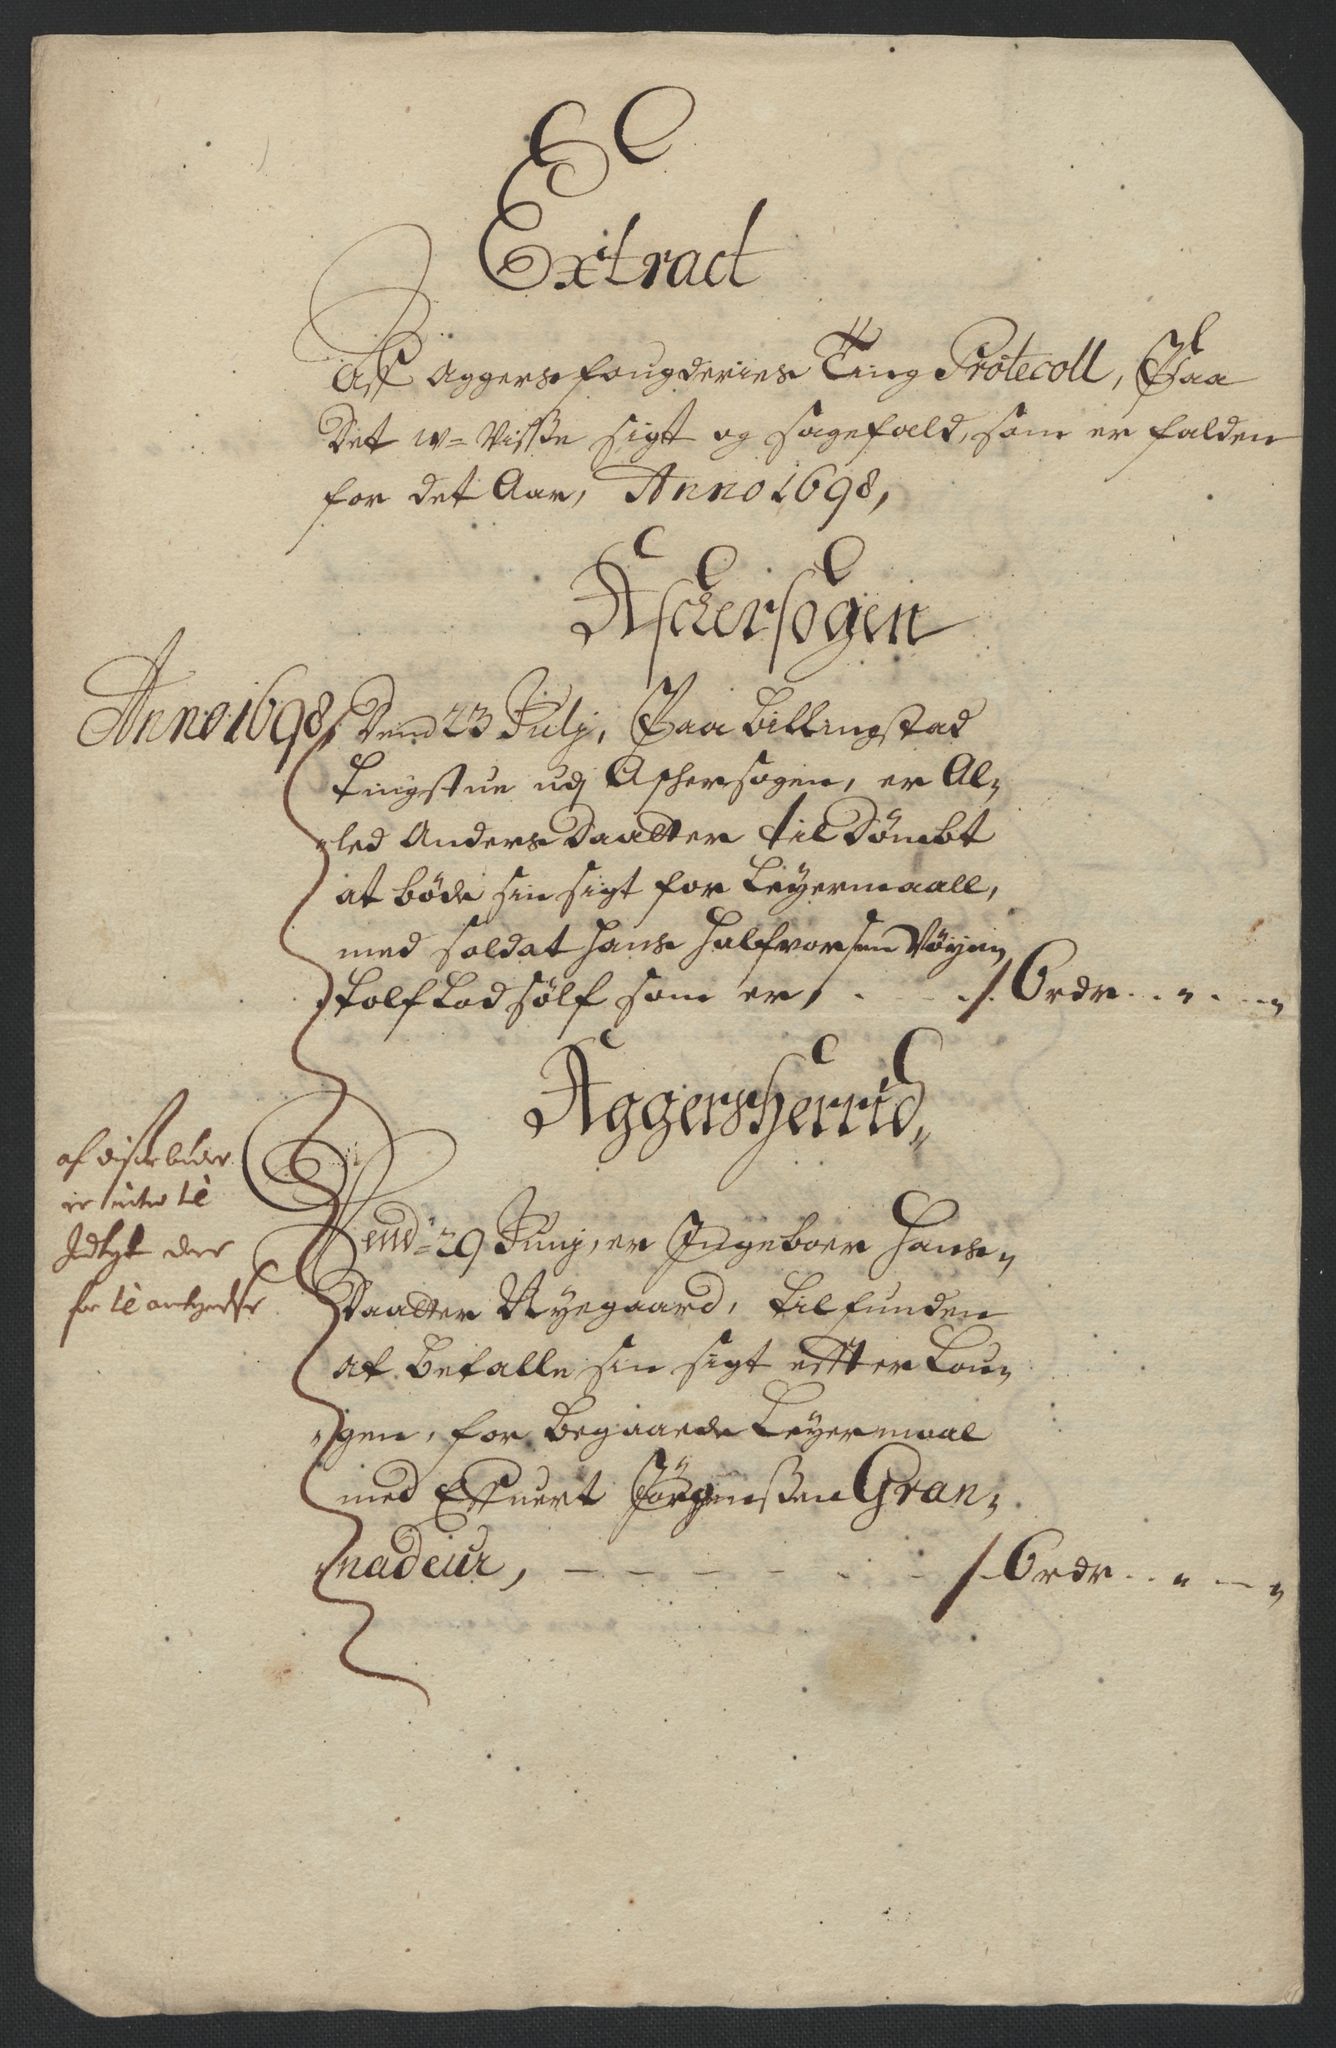 Extract
Aff Aggers fougderies Ting Protecoll, Paa
det w= Visse sigt og sagefald, som er falden
for det Aar, Anno 1698,
Aschersogen
Anno 1698, Dend 23 Julj, Paa Billingstad
tingstue udj Aschersogen, er Al,
led Anders Daatter til Dömbt
at böde sin sigt for Leyermaall,
med soldat Hans Halfvorsen Vöyen,
tolf Lod sölf som er, 6 rdr
Aggersherrid,
af disse bøder
er intet
for
Dend 29 Junj, er Ingeboer Hans,
Daatter Ryegaard, tilfunden
at betalle sin sigt effter Lou,
gen, for begaaede Leyermaal
med Effuert Jörgenssen Gran,
nadeur, 6 rdr